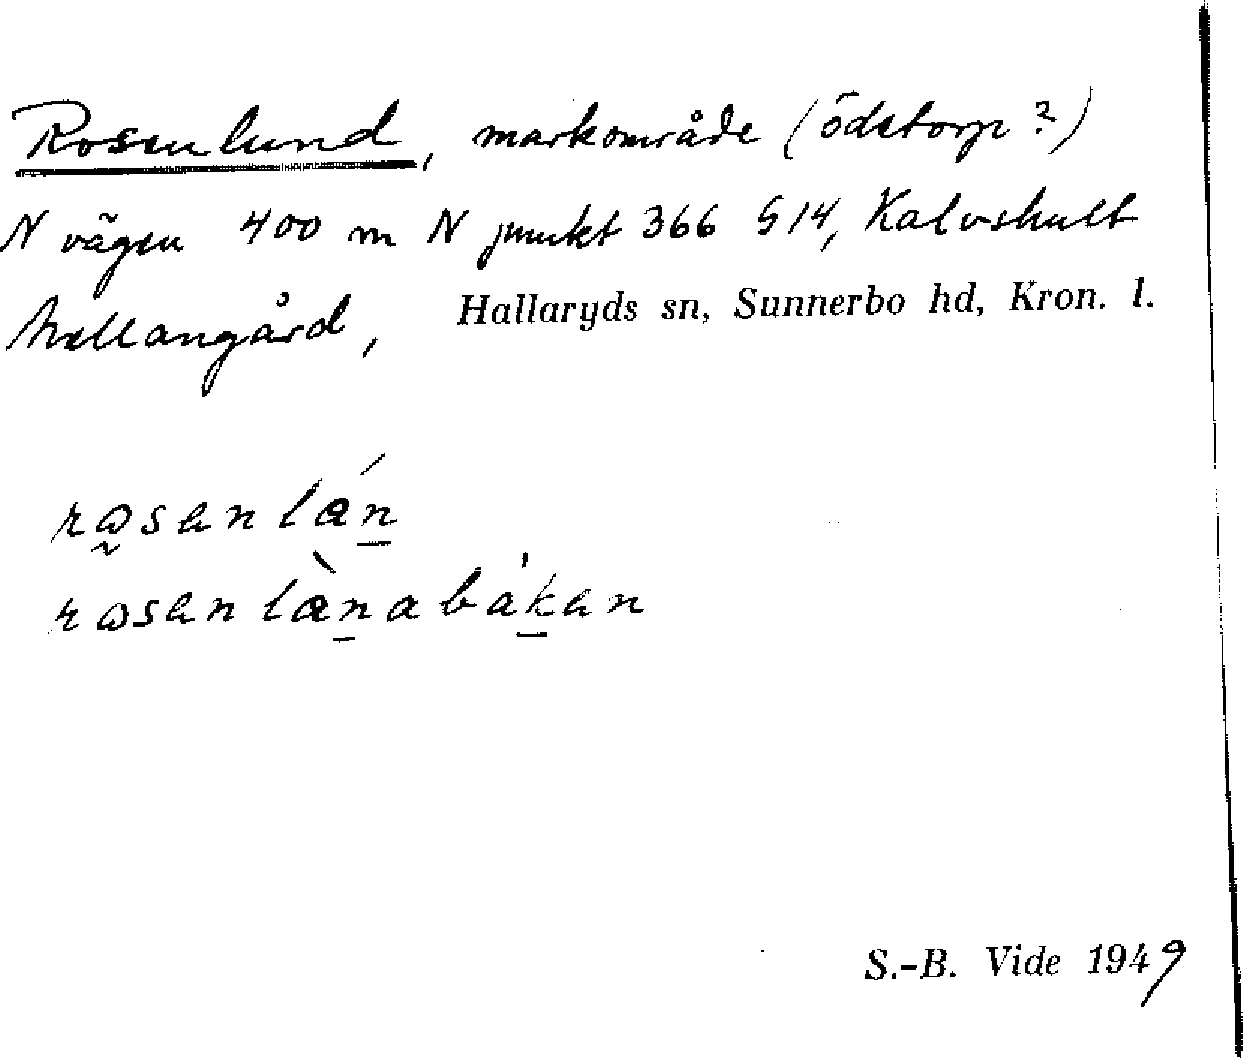 Rosenlund, markområde (ödetorp?)
N vägen 400 m N punkt 366 514, Kalvshult
Mellangård, Hallaryds sn, Sunnerbo hd, Kron. l.
S.-B. Vide 1949